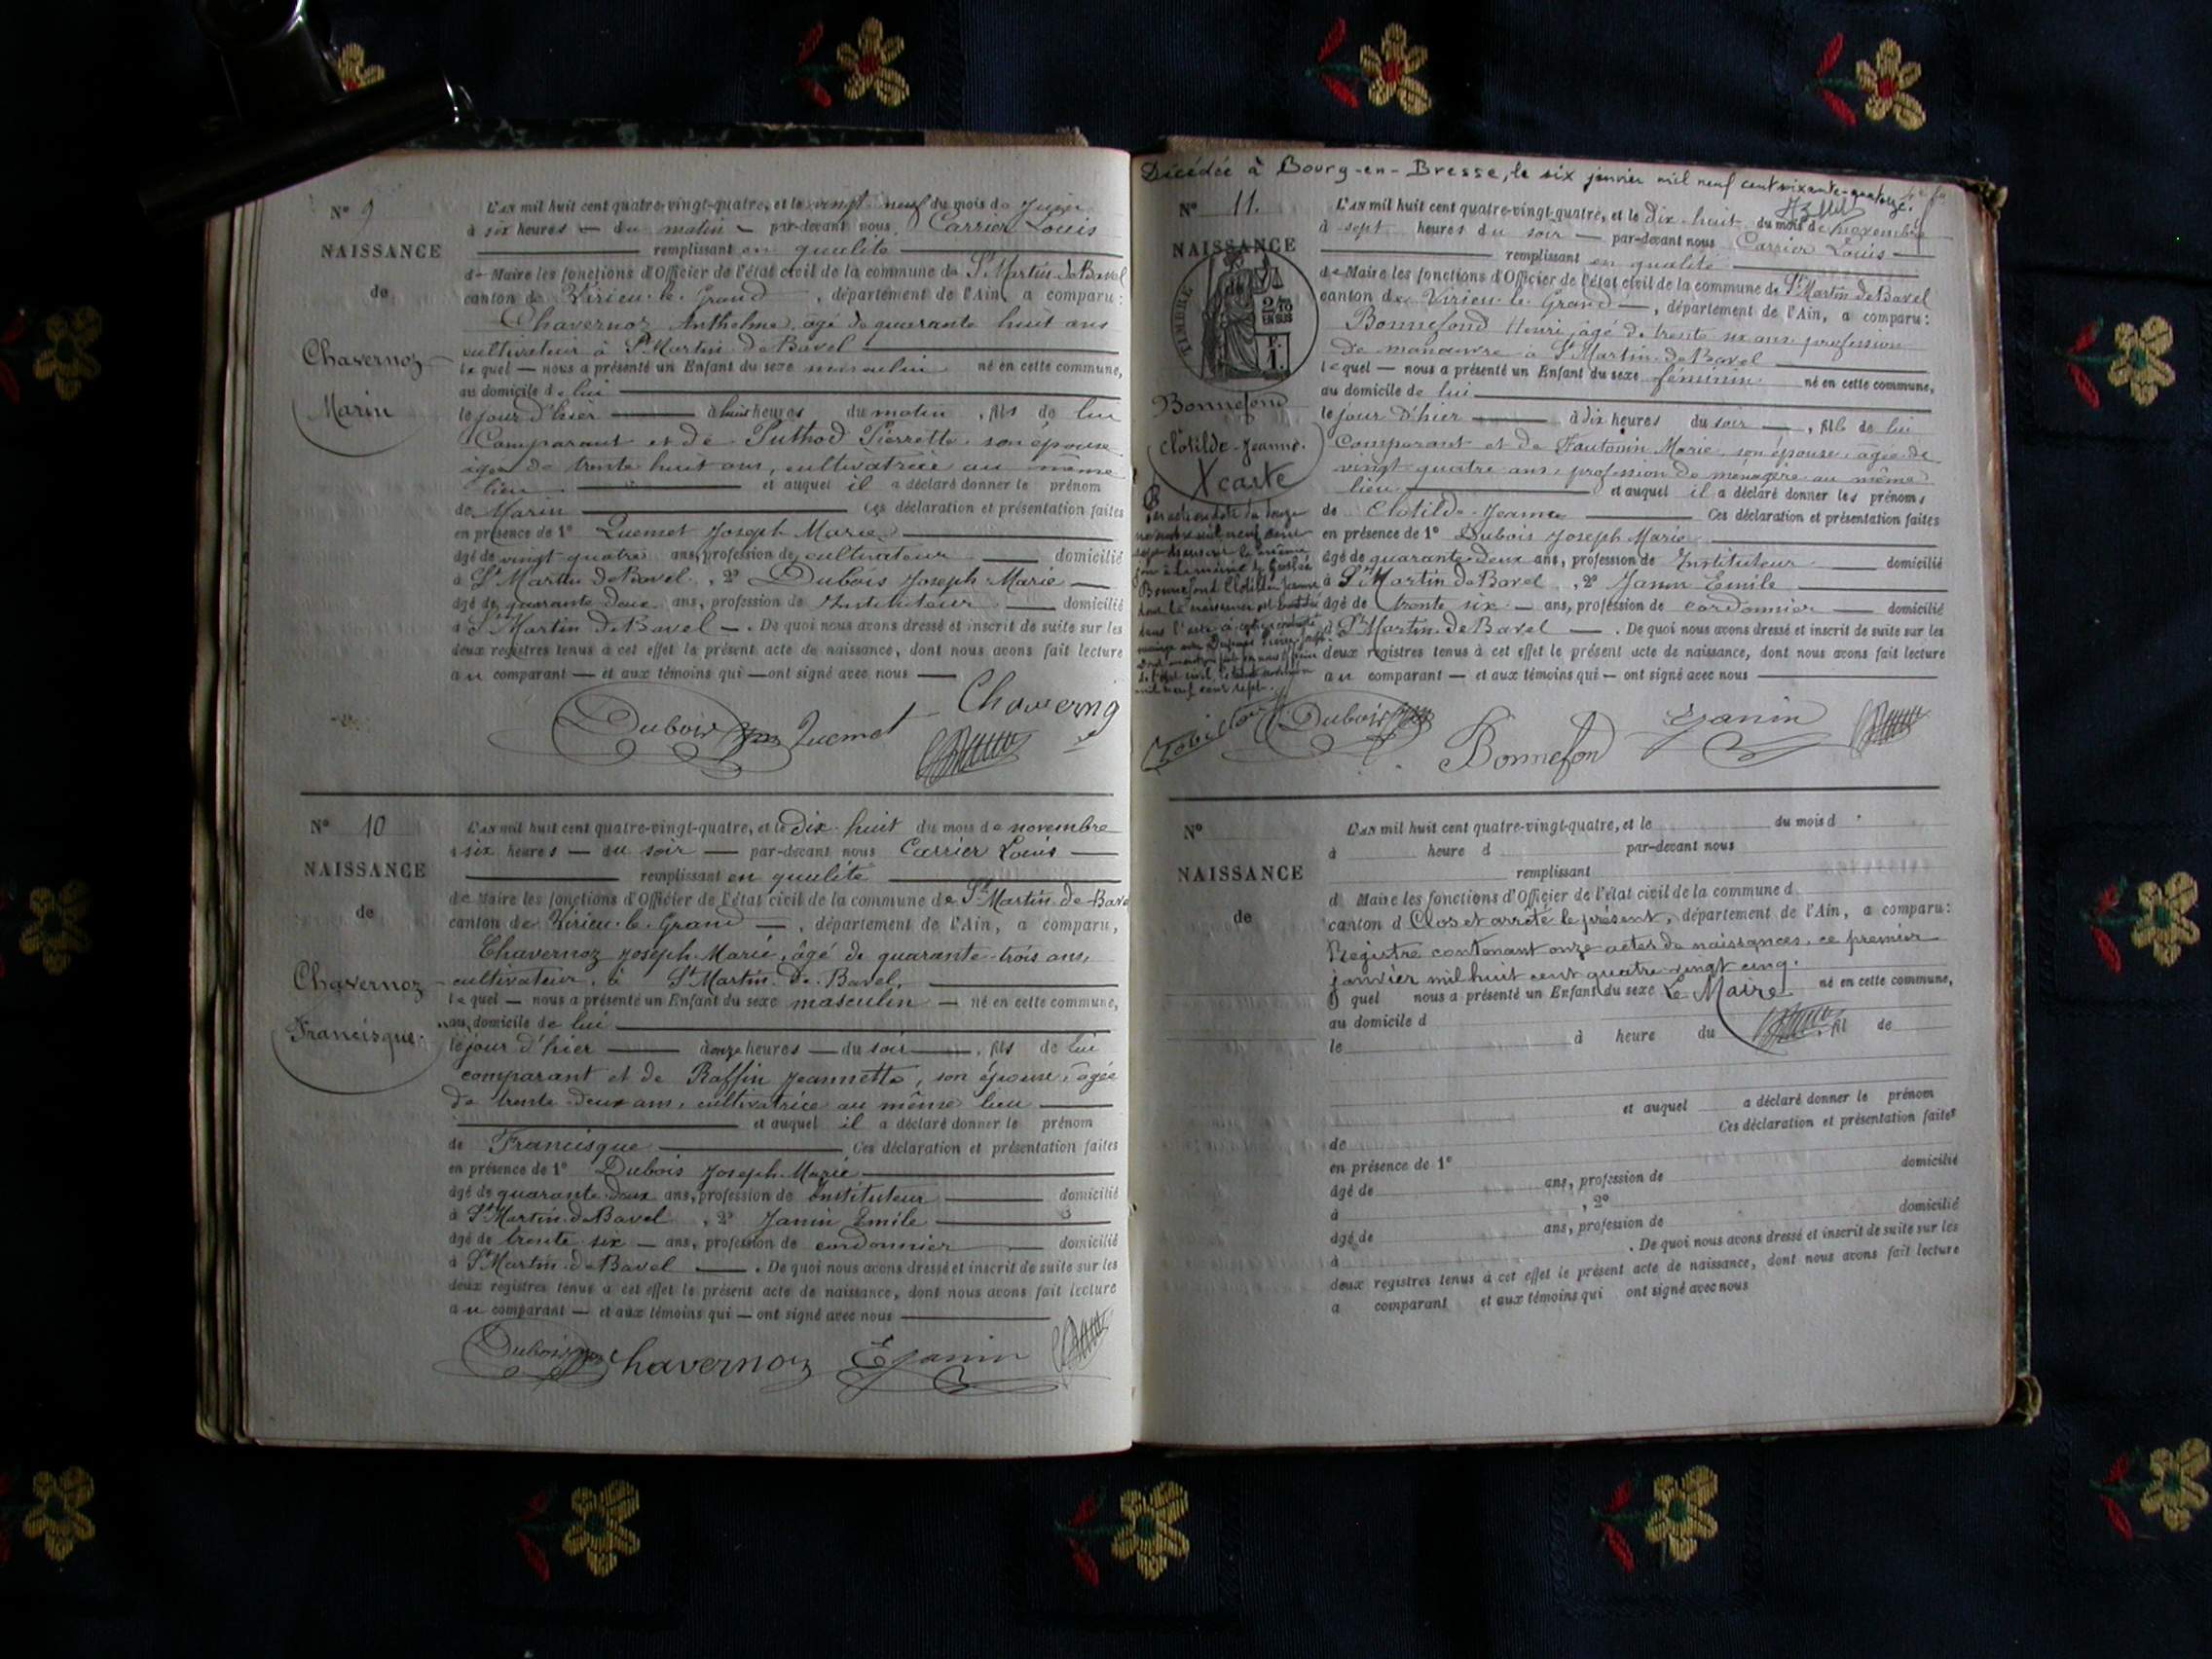 N° 9
NAISSANCE
de
Chavernoz
Marin
L'AN mil huit cent quatre-vingt-quatre, et le vingt neuf du mois de Juin
à six heures — du matin — par-devant nous Carrier Louis
remplissant en qualité
de Maire les fonctions d'Officier de l'état civil de la commune de St Martin de Bavel
canton de Virieu-le-Grand, département de l'Ain, a comparu:
Chavernoz Anthelme, âgé de quarante huit ans
cultivateur à St Martin de Bavel
lequel — nous a présenté un Enfant du sexe masculin né en cette commune,
au domicile de lui
le jour d'hier à huit heures du matin, fils de lui
Comparant et de Puthod Pierrette son épouse
âgée de trente huit ans, cultivatrice au même
lieu et auquel il a déclaré donner le prénom
de Marin Ces déclaration et présentation faites
en présence de 1° Quemet Joseph Marie
âgé de vingt quatre ans, profession de cultivateur domicilié
à St Martin de Bavel, 2° Dubois Joseph Marie
âgé de quarante deux ans, profession de Instituteur domicilié
à St Martin de Bavel —. De quoi nous avons dressé et inscrit de suite sur les
deux registres tenus à cet effet le présent acte de naissance, dont nous avons fait lecture
au comparant — et aux témoins qui — ont signé avec nous —
Dubois Quemet Chavernoz
N° 10
NAISSANCE
de
Chavernoz
Francisque.
L'AN mil huit cent quatre-vingt-quatre, et le dix-huit du mois de novembre
à six heures — du soir — par-devant nous Carrier Louis —
remplissant en qualité
de Maire les fonctions d'Officier de l'état civil de la commune de St Martin de Bavel
canton de Virieu-le-Grand —, département de l'Ain, a comparu,
Chavernoz Joseph Marie, âgé de quarante-trois ans,
cultivateur, à St Martin de Bavel,
lequel — nous a présenté un Enfant du sexe masculin — né en cette commune,
au domicile de lui
le jour d'hier à onze heures — du soir —, fils de lui
comparant et de Raffin Jeannette, son épouse, âgée
de trente-deux ans, cultivatrice au même lieu
et auquel il a déclaré donner le prénom
de Francisque Ces déclaration et présentation faites
en présence de 1° Dubois Joseph-Marie
âgé de quarante deux ans, profession de Instituteur domicilié
à St Martin de Bavel, 2° Janin Emile
âgé de trente six — ans, profession de cordonnier domicilié
à St Martin de Bavel —. De quoi nous avons dressé et inscrit de suite sur les
deux registres tenus à cet effet le présent acte de naissance, dont nous avons fait lecture
au comparant — et aux témoins qui — ont signé avec nous
Dubois Chavernoz E Janin
Décédée à Bourg-en-Bresse, le six janvier mil neuf cent soixante-quatorze.
N° 11.
NAISSANCE
de
TIMBRE
2/10
EN SUS
F.
1.
Bonnefond
Clotilde-Jeanne.
X carte
Par acte en date du douze
novembre mil neuf cent
sept
Bonnefond Clotilde Jeanne
dont la naissance est constatée
dans l'acte ci-contre a contracté
mariage avec
mil neuf cent sept.
L'AN mil huit cent quatre-vingt-quatre, et le dix huit du mois de novembre
à sept heures du soir — par-devant nous Carrier Louis —
remplissant en qualité
de Maire les fonctions d'Officier de l'état civil de la commune de St Martin de Bavel
canton de Virieu-le-Grand —, département de l'Ain, a comparu:
Bonnefond Henri, âgé de trente six ans, profession
de manœuvre à St Martin de Bavel
lequel — nous a présenté un Enfant du sexe féminin né en cette commune,
au domicile de lui
le jour d'hier à dix heures du soir —, fille de lui
Comparant et de Marie son épouse, âgée de
vingt quatre ans, profession de ménagère au même
lieu et auquel il a déclaré donner les prénoms
de Clotilde-Jeanne Ces déclaration et présentation faites
en présence de 1° Dubois Joseph Marie
âgé de quarante deux ans, profession de Instituteur domicilié
à St Martin de Bavel, 2° Janin Emile
âgé de trente six — ans, profession de cordonnier — domicilié
à St Martin de Bavel —. De quoi nous avons dressé et inscrit de suite sur les
deux registres tenus à cet effet le présent acte de naissance, dont nous avons fait lecture
au comparant — et aux témoins qui — ont signé avec nous
Dubois Bonnefond E Janin
N°
NAISSANCE
de
L'AN mil huit cent quatre-vingt-quatre, et le du mois d
à heure d par-devant nous
remplissant
d Maire les fonctions d'Officier de l'état civil de la commune d
canton d Clos et arrêté le présent, département de l'Ain, a comparu:
Registre contenant onze actes de naissances, ce premier
janvier mil huit cent quatre-vingt cinq.
l quel nous a présenté un Enfant du sexe Le Maire né en cette commune,
au domicile d
le à heure du fil de
et auquel a déclaré donner le prénom
de Ces déclaration et présentation faites
en présence de 1° domicilié
âgé de ans, profession de
à , 2° domicilié
âgé de ans, profession de
à . De quoi nous avons dressé et inscrit de suite sur les
deux registres tenus à cet effet le présent acte de naissance, dont nous avons fait lecture
a comparant et aux témoins qui ont signé avec nous